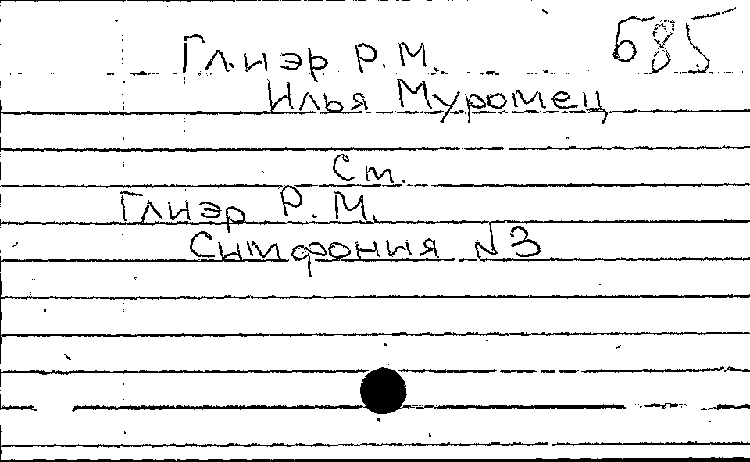 Глиэр Р.М. 685
Илья Муромец
См.
Глиэр Р.М.
Симфония №3